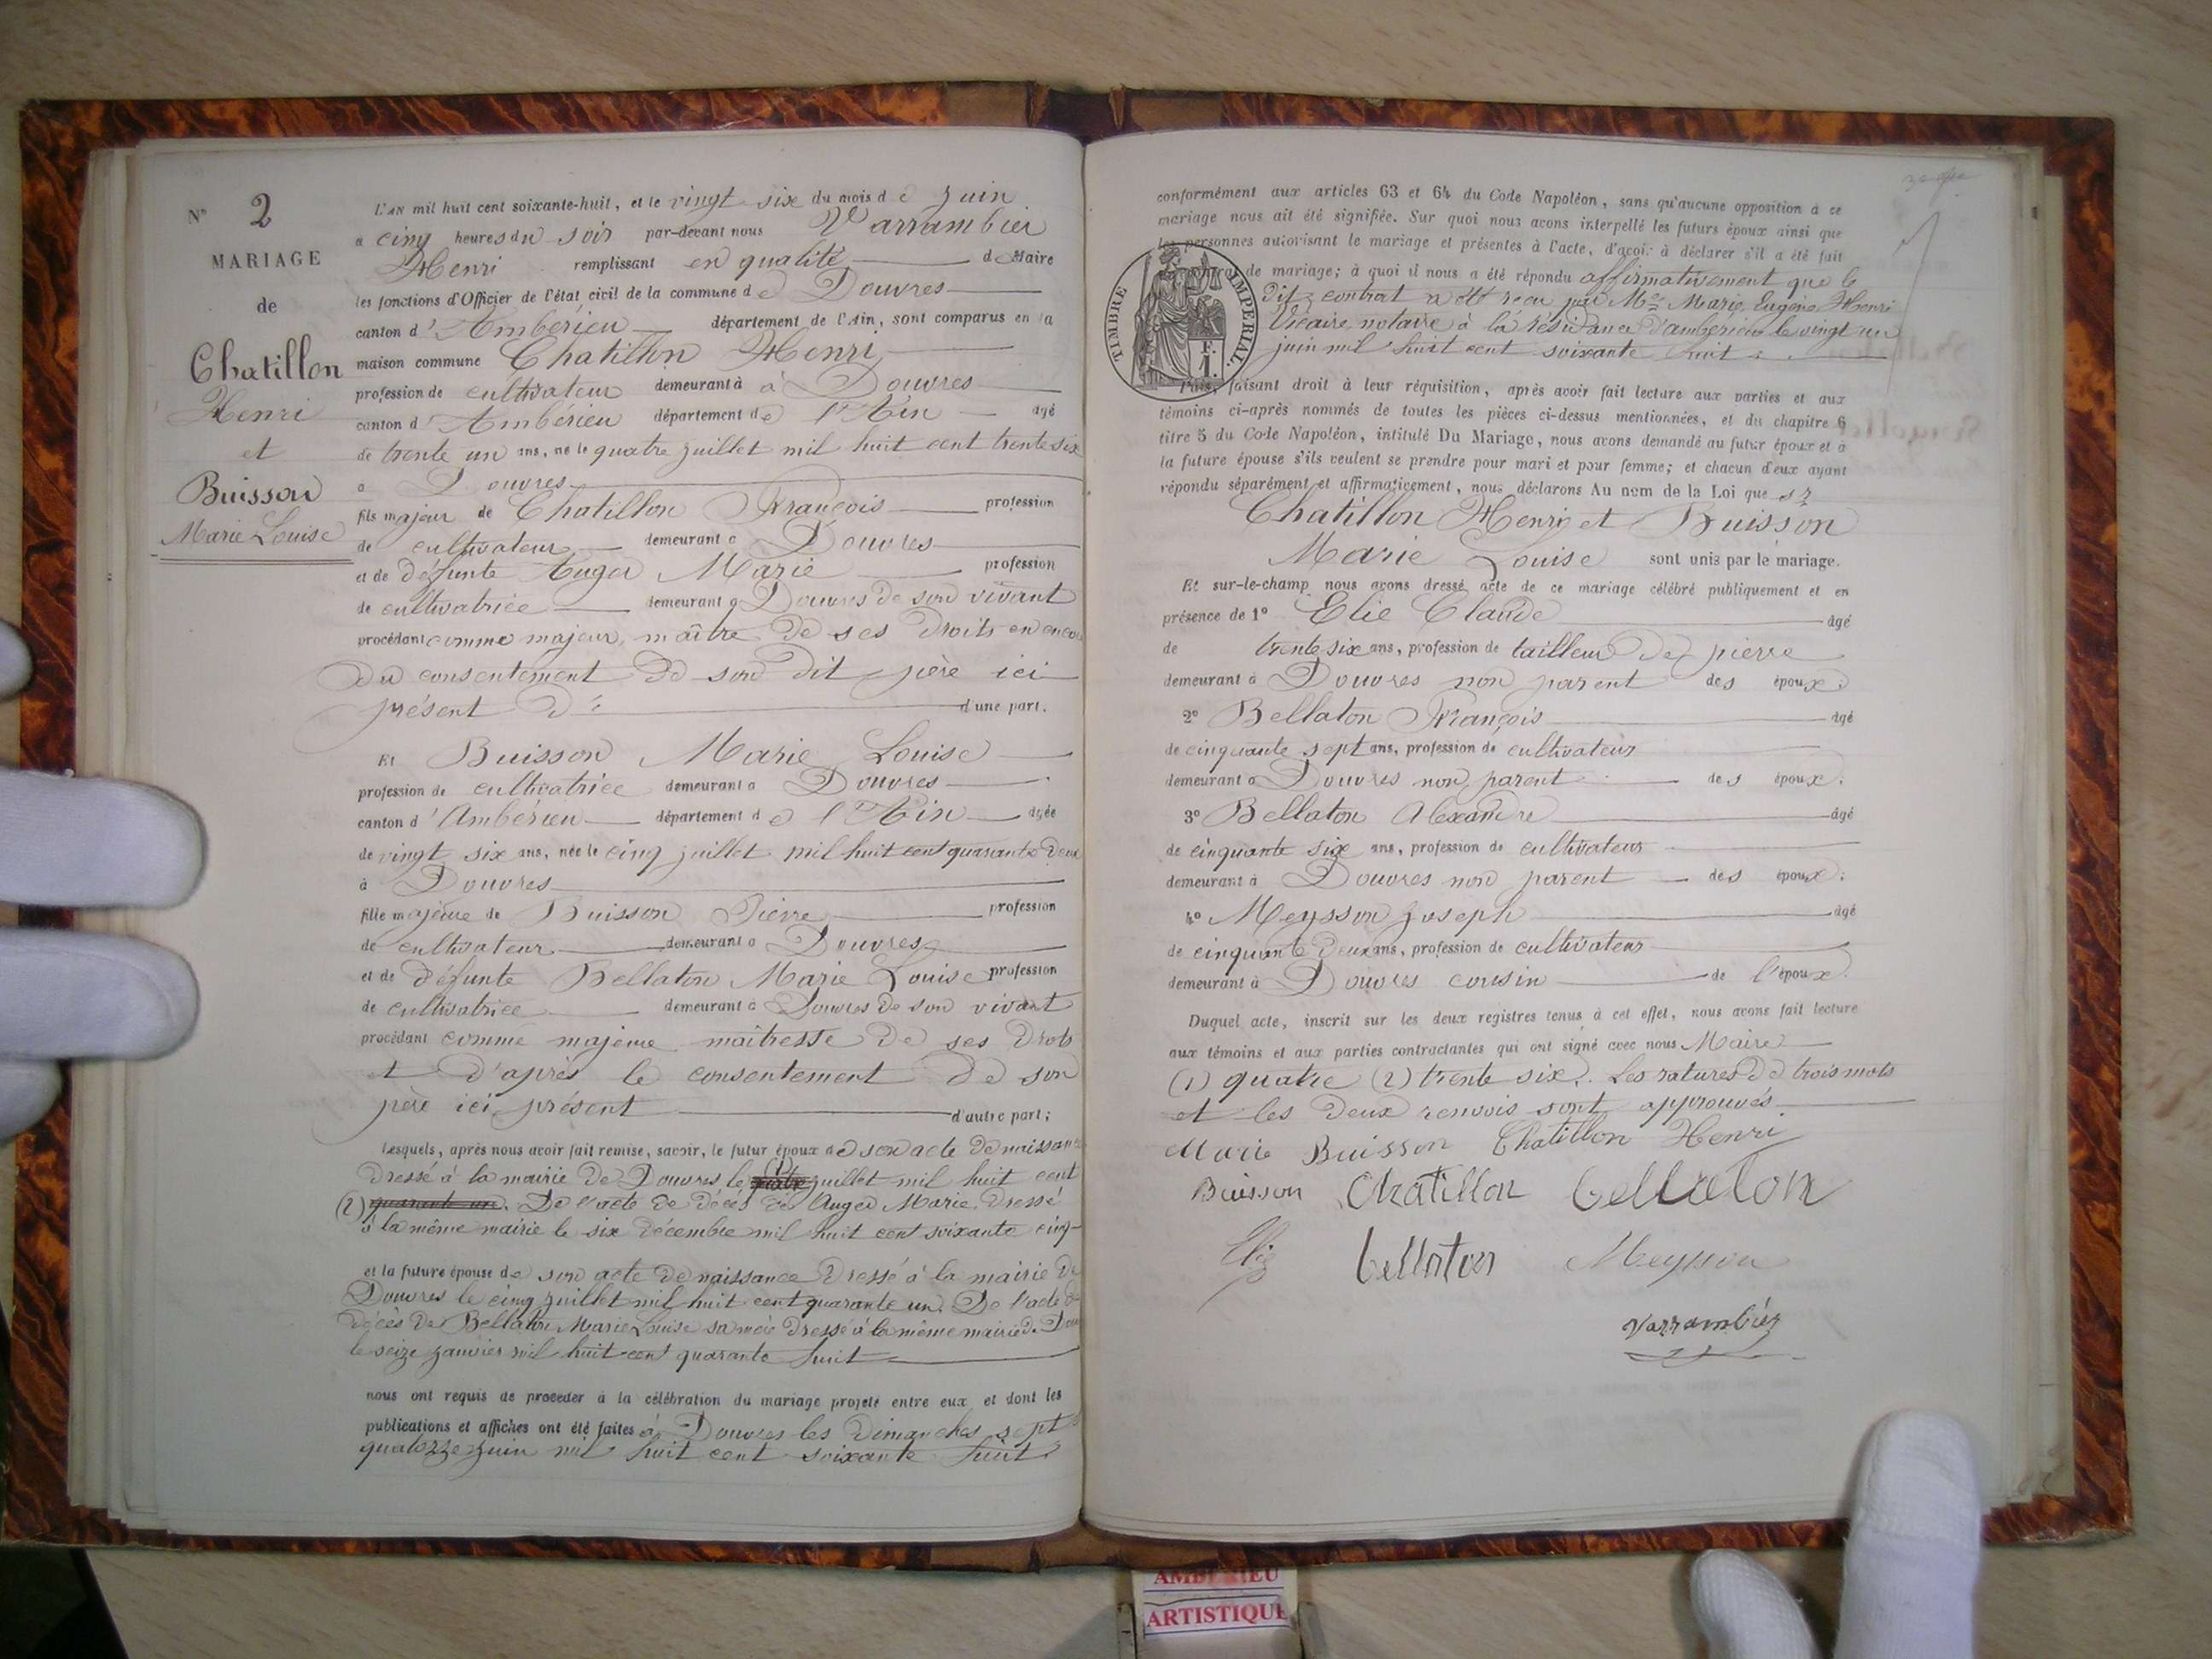 N° 2
MARIAGE
de
Chatillon
Henri
et
Buisson
Marie Louise
L'AN mil huit cent soixante-huit, et le vingt six du mois de Juin
à cinq heures du soir par-devant nous Varrambier
Henri remplissant en qualité de Maire
les fonctions d'Officier de l'état civil de la commune de Douvres
canton d'Ambérieu département de l'Ain, sont comparus en la
maison commune Chatillon Henri
profession de cultivateur demeurant à à Douvres
canton d'Ambérieu département de l'Ain âgé
de trente un ans, né le quatre juillet mil huit cent trente six
à Douvres
fils majeur de Chatillon François profession
de cultivateur demeurant à Douvres
et de défunte Auger Marie profession
de cultivatrice demeurant à Douvres de son vivant
procédant comme majeur, maître de ses droits en encor
du consentement de son dit père ici
présent d'une part.
Et Buisson Marie Louise
profession de cultivatrice demeurant à Douvres
canton d'Ambérieu département de l'Ain âgée
de vingt six ans, née le cinq juillet mil huit cent quarante deux
à Douvres
fille majeure de Buisson Pierre profession
de cultivateur demeurant à Douvres
et de défunte Bellaton Marie Louise profession
de cultivatrice demeurant à Douvres de son vivant
procédant comme majeure maîtresse de ses droits
et d'après le consentement de son
père ici présent d'autre part;
Lesquels, après nous avoir fait remise, savoir, le futur époux de son acte de naissance
dressé à la mairie de Douvres le (1) quatre juillet mil huit cent
(2) quarante un. De l'acte de décès de Auger Marie dressé
à la même mairie le six décembre mil huit cent soixante cinq
et la future épouse de son acte de naissance dressé à la mairie de
Douvres le cinq juillet mil huit cent quarante un. De l'acte de
décès de Bellaton Marie Louise sa mère dressé à la même mairie de Dou
le seize janvier mil huit cent quarante huit
nous ont requis de procéder à la célébration du mariage projeté entre eux et dont les
publications et affiches ont été faites à Douvres les dimanches sept
quatorze juin mil huit cent soixante huit
conformément aux articles 63 et 64 du Code Napoléon, sans qu'aucune opposition à ce
mariage nous ait été signifiée. Sur quoi nous avons interpellé les futurs époux ainsi que
les personnes autorisant le mariage et présentes à l'acte, d'avoir à déclarer s'il a été fait
contrat de mariage; à quoi il nous a été répondu affirmativement que le
dit contrat a été reçu par Me Marie Eugène Henri
Vicaire notaire à la résidence d'ambérieu le vingt un
juin mil huit cent soixante huit
TIMBRE IMPERIAL
1 F.
Puis, faisant droit à leur réquisition, après avoir fait lecture aux parties et aux
témoins ci-après nommés de toutes les pièces ci-dessus mentionnées, et du chapitre 6
titre 5 du Code Napoléon, intitulé Du Mariage, nous avons demandé au futur époux et à
la future épouse s'ils veulent se prendre pour mari et pour femme; et chacun d'eux ayant
répondu séparément et affirmativement, nous déclarons Au nom de la Loi que
Chatillon Henri et Buisson
Marie Louise sont unis par le mariage.
Et sur-le-champ nous avons dressé acte de ce mariage célébré publiquement et en
présence de 1° Elie Claude âgé
de trente six ans, profession de tailleur de pierre
demeurant à Douvres non parent des époux;
2° Bellaton François âgé
de cinquante sept ans, profession de cultivateur
demeurant à Douvres non parent des époux;
3° Bellaton Alexandre âgé
de cinquante six ans, profession de cultivateur
demeurant à Douvres non parent des époux;
4° Meysson Joseph âgé
de cinquante deux ans, profession de cultivateur
demeurant à Douvres cousin de l'époux.
Duquel acte, inscrit sur les deux registres tenus à cet effet, nous avons fait lecture
aux témoins et aux parties contractantes qui ont signé avec nous Maire
(1) quatre (2) trente six. Les ratures de trois mots
et les deux renvois sont approuvés.
Marie Buisson Chatillon Henri
Buisson Chatillon Bellaton
Elie Bellaton Meysson
Varrambier
AMBERIEU
ARTISTIQUE